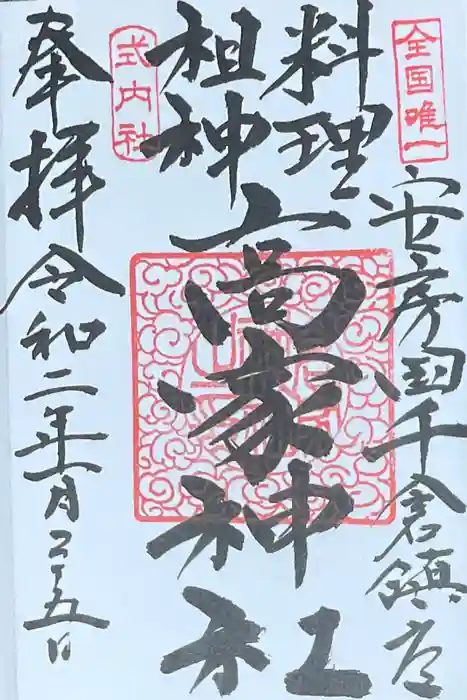 全国唯一
安房国千倉鎮座
料理
祖神
高家神社
式内社
奉拝
令和二年六月二十五日